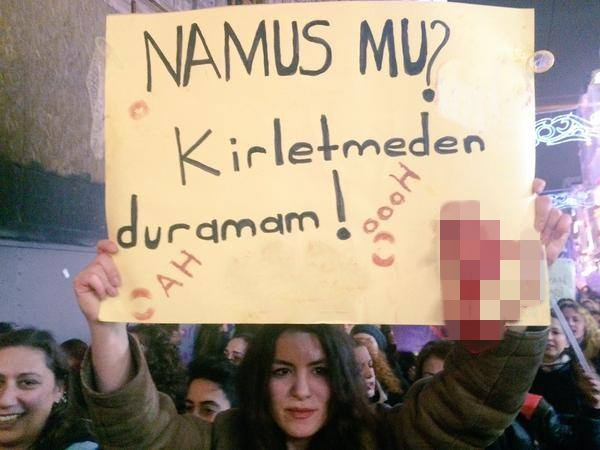 NAMUS MU?
Kirletmeden
duramam!
AH
OOOH